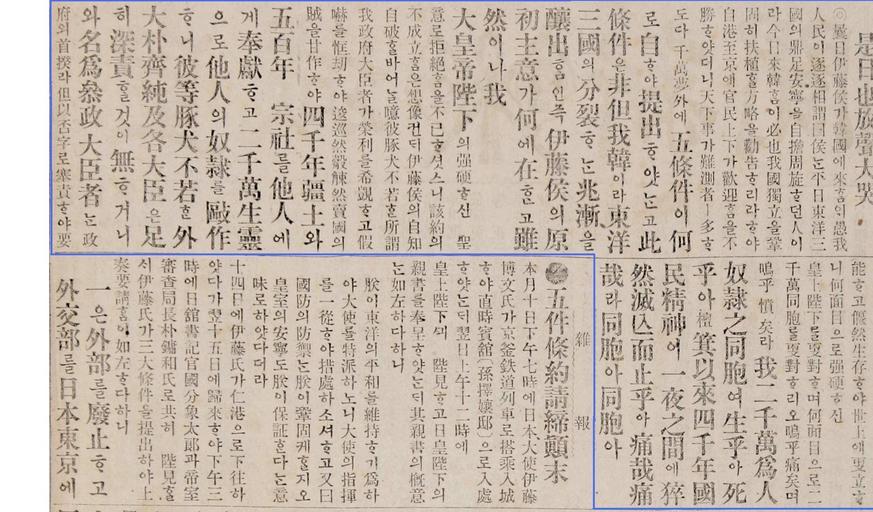 是日也放聲大哭
◎曩日伊藤侯가韓國에來홈이愚我
人民이逐逐相謂曰侯ᄂᆞᆫ平日東洋三
國의鼎足安寧을自擔周旋ᄒᆞ던人이
라今日來韓홈이必也我國獨立을鞏
固히扶植ᄒᆞᆯ方略을勸告ᄒᆞ리라ᄒᆞ야
自港至京에官民上下가歡迎홈을不
勝ᄒᆞ얏더니天下事가難測者ㅣ多ᄒᆞ
도다千萬夢外에五條件이何
로自ᄒᆞ야提出ᄒᆞ얏ᄂᆞᆫ고此
條件은非但我韓이라東洋
三國의分裂ᄒᆞᄂᆞᆫ兆漸을
釀出홈인즉伊藤侯의原
初主意가何에在ᄒᆞᆫ고雖
然이나我
大皇帝陛下의强硬ᄒᆞ신 聖
意로拒絶홈을不已ᄒᆞ셧스니該約의
不成立홈은想像컨ᄃᆡ伊藤侯의自知
自破ᄒᆞᆯ바어ᄂᆞᆯ噫彼豚犬不若ᄒᆞᆫ所謂
我政府大臣者가榮利를希覬ᄒᆞ고假
嚇를恇劫ᄒᆞ야逡巡然觳觫然賣國의
賊을甘作ᄒᆞ야四千年疆土와
五百年 宗社를他人에
게奉獻ᄒᆞ고二千萬生靈
으로他人의奴隷를敺作
ᄒᆞ니彼等豚犬不若ᄒᆞᆫ外
大朴齊純及各大臣은足
히深責ᄒᆞᆯ것이無ᄒᆞ거니
와名爲叅政大臣者ᄂᆞᆫ政
府의首揆라但以否字로塞責ᄒᆞ야要
能ᄒᆞ고偃然生存ᄒᆞ야世上에更立ᄒᆞ
니何面目으로强硬ᄒᆞ신
皇上陛下를更對ᄒᆞ며何面目으로二
千萬同胞를更對ᄒᆞ리오嗚乎痛矣며
嗚乎憤矣라我二千萬爲人
奴隷之同胞여生乎아死
乎아檀箕以來四千年國
民精神이一夜之間에猝
然滅亡而止乎아痛哉痛
哉라同胞아同胞아
雜報
●五件條約請締顚末
本月十日下午七時에日本大使伊藤
博文氏가京釜鐵道列車로搭乘入城
ᄒᆞ야直時賓舘(孫擇孃邸)으로入處
ᄒᆞ얏ᄂᆞᆫ딕翌日上午十二時에
皇上陛下ᄭᅴ 陛見ᄒᆞ고日皇陛下의
親書를奉呈ᄒᆞ얏ᄂᆞᆫ딕其親書의槪意
ᄂᆞᆫ如左ᄒᆞ다ᄒᆞ니
朕이東洋의平和를維持ᄒᆞ기爲ᄒᆞ
야大使를特派ᄒᆞ노니大使의指揮
를一從ᄒᆞ야措處ᄒᆞ소셔ᄒᆞ고又曰
國防의防禦ᄂᆞᆫ朕이鞏固케ᄒᆞᆯ지오
皇室의安寧도朕이保証ᄒᆞᆫ다ᄂᆞᆫ意
味로ᄒᆞ얏더라
十四日에伊藤氏가仁港으로下往ᄒᆞ
얏다가翌十五日에歸來ᄒᆞ야下午三
時에日舘書記官國分象太郞과帝室
審査局長朴鏞和氏로共히 陛見ᄒᆞᆯ
시伊藤氏가三大條件을提出ᄒᆞ야上
奏要請홈이如左ᄒᆞ다ᄒᆞ니
一은外部를廢止ᄒᆞ고
外交部를日本東京에